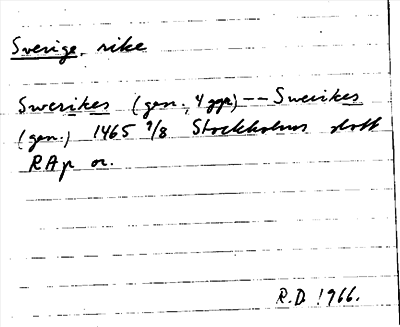 Sverige, rike
Swerikes (gen., 4 ggr) -- Swerikes
(gen.) 1465 9/8 Stockholms slott
RAp or.
R.D. 1966.